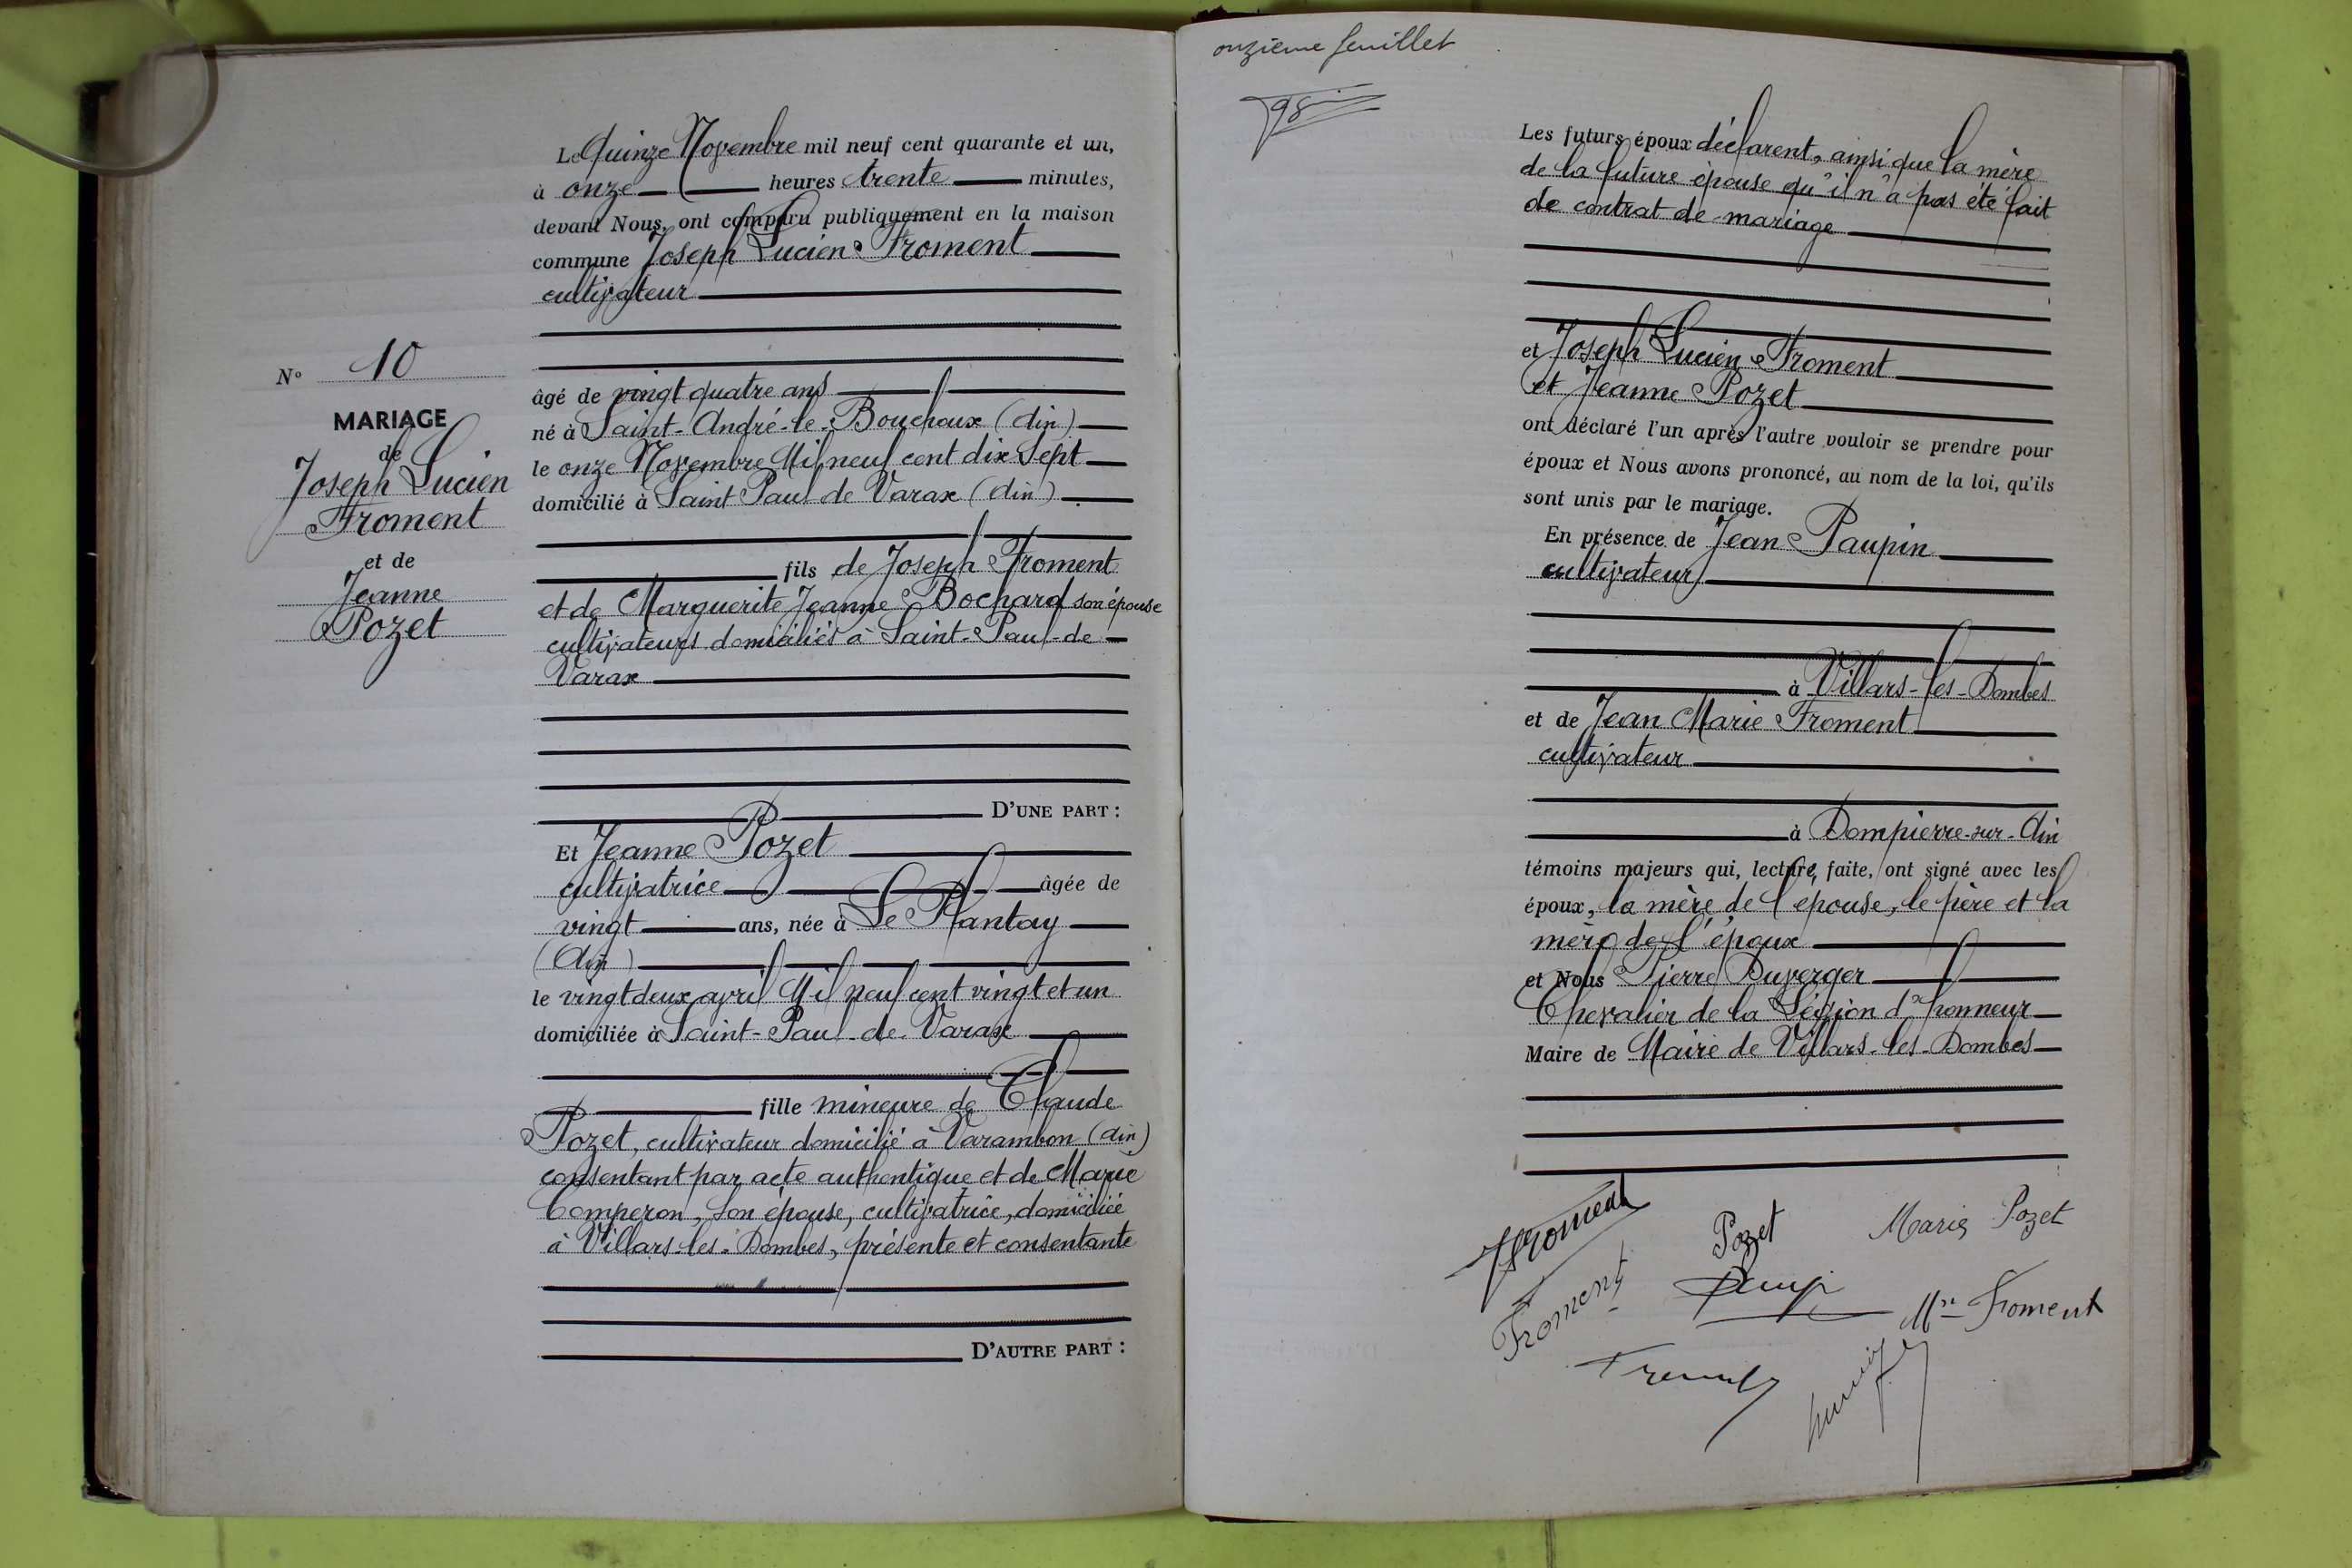 Le Quinze Novembre mil neuf cent quarante et un,
à onze heures trente minutes,
devant Nous, ont comparu publiquement en la maison
commune Joseph Lucien Froment
cultivateur
N° 10
MARIAGE
de
Joseph Lucien
Froment
et de
Jeanne
Pozet
âgé de vingt quatre ans
né à Saint-André-le-Bouchoux (Ain)
le onze Novembre Mil neuf cent dix Sept
domicilié à Saint Paul de Varax (Ain)
fils de Joseph Froment
et de Marguerite Jeanne Bochard son épouse
cultivateurs domiciliés à Saint-Paul-de
Varax
D'UNE PART :
Et Jeanne Pozet
cultivatrice âgée de
vingt ans, née à Le Plantay
(Ain)
le vingt deux avril Mil neuf cent vingt et un
domiciliée à Saint-Paul-de-Varax
fille mineure de Claude
Pozet, cultivateur domicilié à Varambon (Ain)
consentant par acte authentique et de Marie
Comperon, son épouse, cultivatrice, domiciliée
à Villars-les-Dombes, présente et consentante
D'AUTRE PART :
onzième feuillet
Les futurs époux déclarent, ainsi que la mère
de la future épouse qu'il n'a pas été fait
de contrat de mariage
et Joseph Lucien Froment
et Jeanne Pozet
ont déclaré l'un après l'autre vouloir se prendre pour
époux et Nous avons prononcé, au nom de la loi, qu'ils
sont unis par le mariage.
En présence de Jean Paupin
cultivateur
à Villars-les-Dombes
et de Jean Marie Froment
cultivateur
à Dompierre-sur-Ain
témoins majeurs qui, lecture faite, ont signé avec les
époux, la mère de l'épouse, le père et la
mère de l'époux
et Nous Pierre Duverger
Chevalier de la Légion d'honneur
Maire de Maire de Villars-les-Dombes
Froment
Pozet
Marie Pozet
Froment
Mie Froment